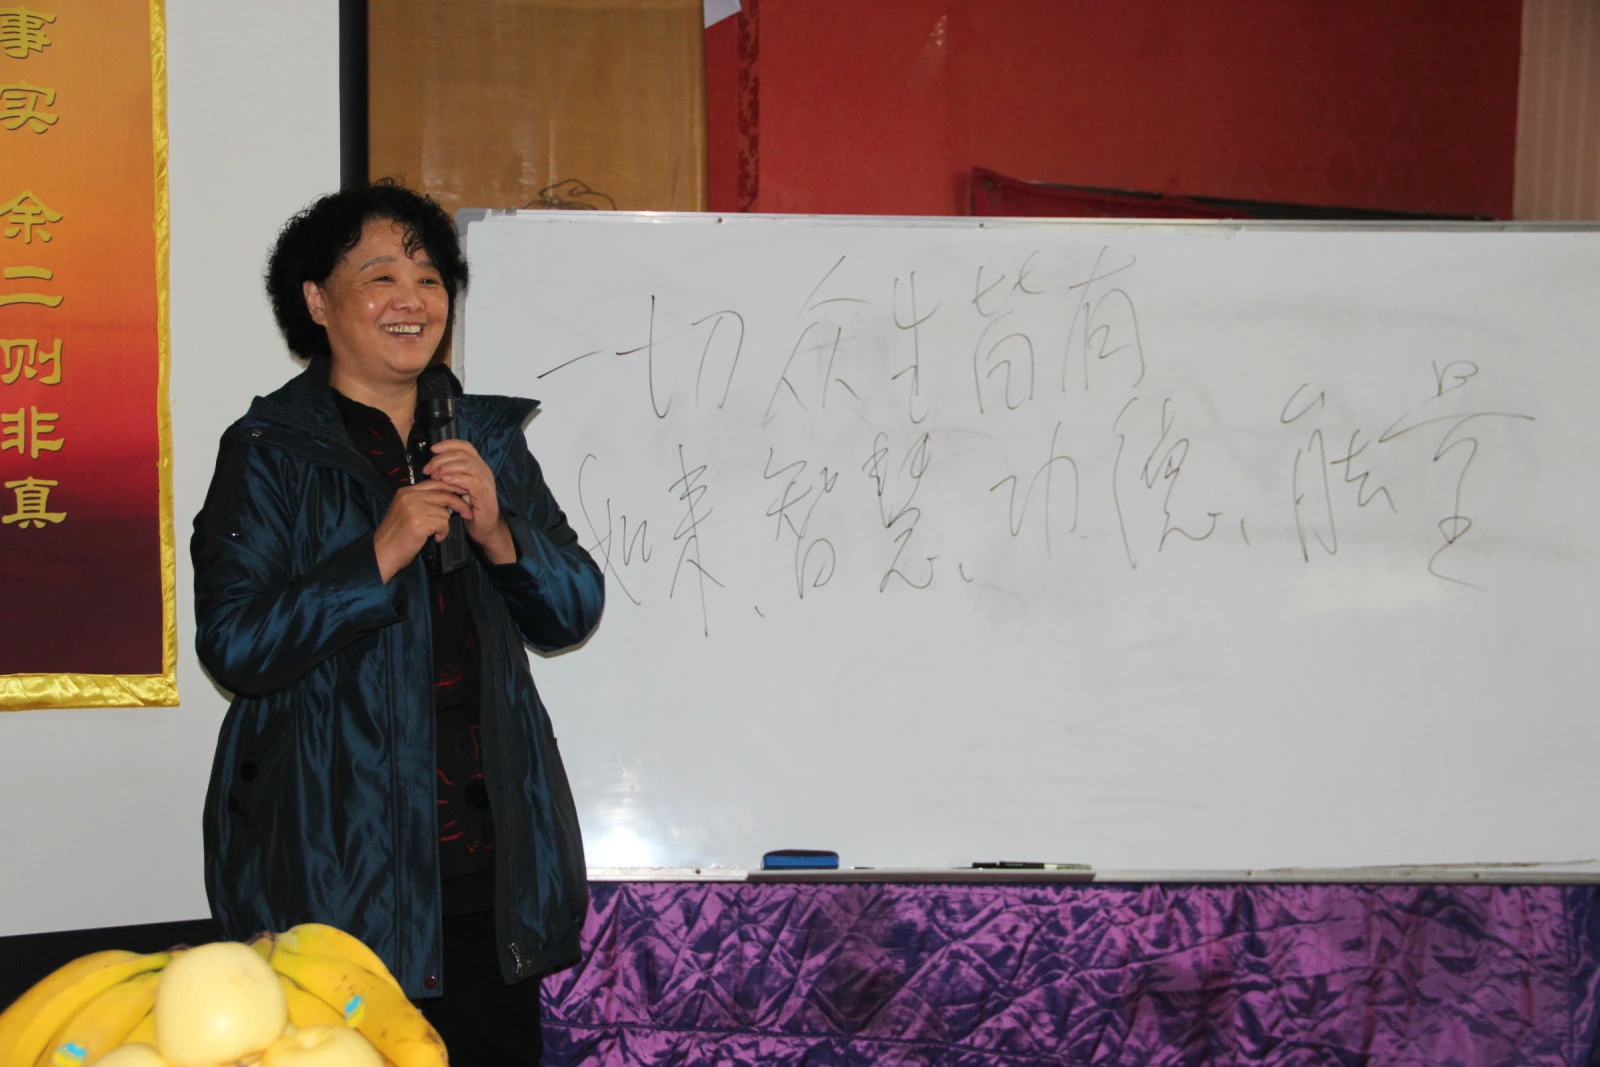 事实 余二则非真
一切众生皆有
如来、智慧、功德、能量